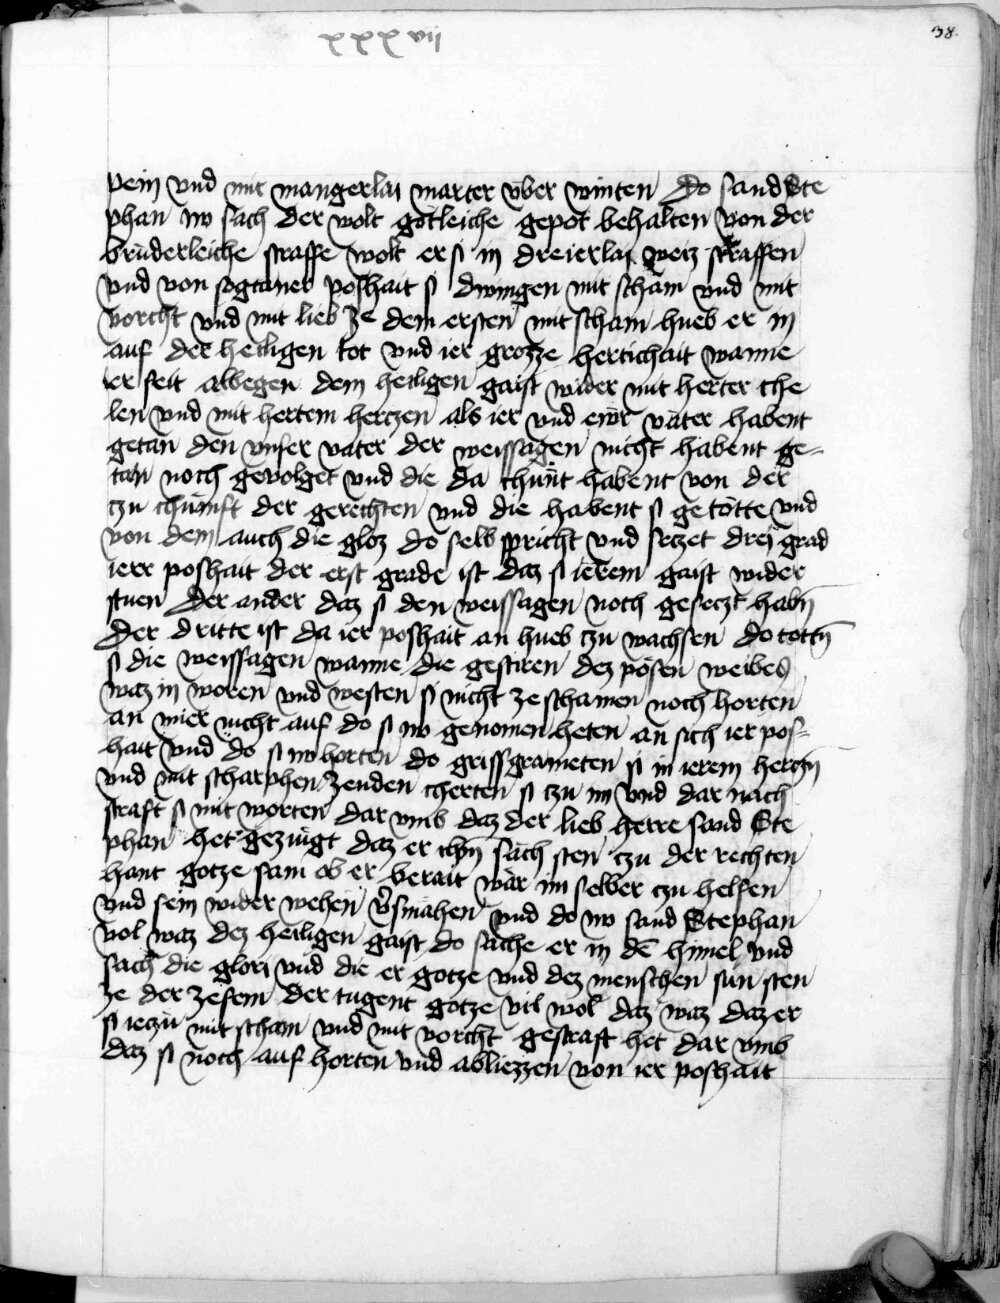 38.
xxxvii
pein vnd mit mangerlai marter vber winten Do sand Ste
phan nw sach der wolt götleiche gepot behalten von der
brüderleiche straffe wolt er si in dreierlai weiz straffen
vnd von sogtaner poshait si dwingen mit scham vnd mit
vorcht vnd mit lieb ze dem ersten mit scham hueb er in
auf der heiligen tot vnd ier grozze hertichait wanne
ier seit albegen dem heiligen gaist wider mit herter che
len vnd mit hertem hertzen als ier vnd ewr väter habent
getan den vnser vater der weissagen nicht habent ge-
tan noch gevolget vnd die da chünt habent von der
czu chumft der gerechten vnd die habent si getötte vnd
von dem auch die gloz do selb spricht vnd seczet drej grad
ierr poshait der erst grade ist daz si ierem gaist wider
stuen Der ander daz si den weissagen noch geseczt habn
Der dritte ist da ier poshait an hueb czu wachsen do tottn
si die weissagen wanne die gestiren dez pösen weibes
waz in woren vnd westen si nicht ze schamen noch horten
an mier nicht auf do si nw genomen heten an sich ier pos-
hait vnd do si nw horten do grissgrameten si in ierem herczn
vnd mit scharphen zenden cherten si czu im vnd dar nach
straft si mit worten dar vmb daz der lieb herre sand Ste
phan het gezuigt daz er sach sten czu der rechten
hant gotze sam ob er berait wär im selber czu helfen
vnd sein wider wehen vsmähen vnd do nw sand Stephan
vol waz dez heiligen gaist do sache er in de himel vnd
sach die glori vnd die er gotze vnd dez menschen sun sten
ze der zesem der tugent gotze vil wol daz waz daz er
si ieczu mit scham vnd mit vorcht gestraft het dar vmb
daz si noch auf horten vnd abliezzen von ier poshait